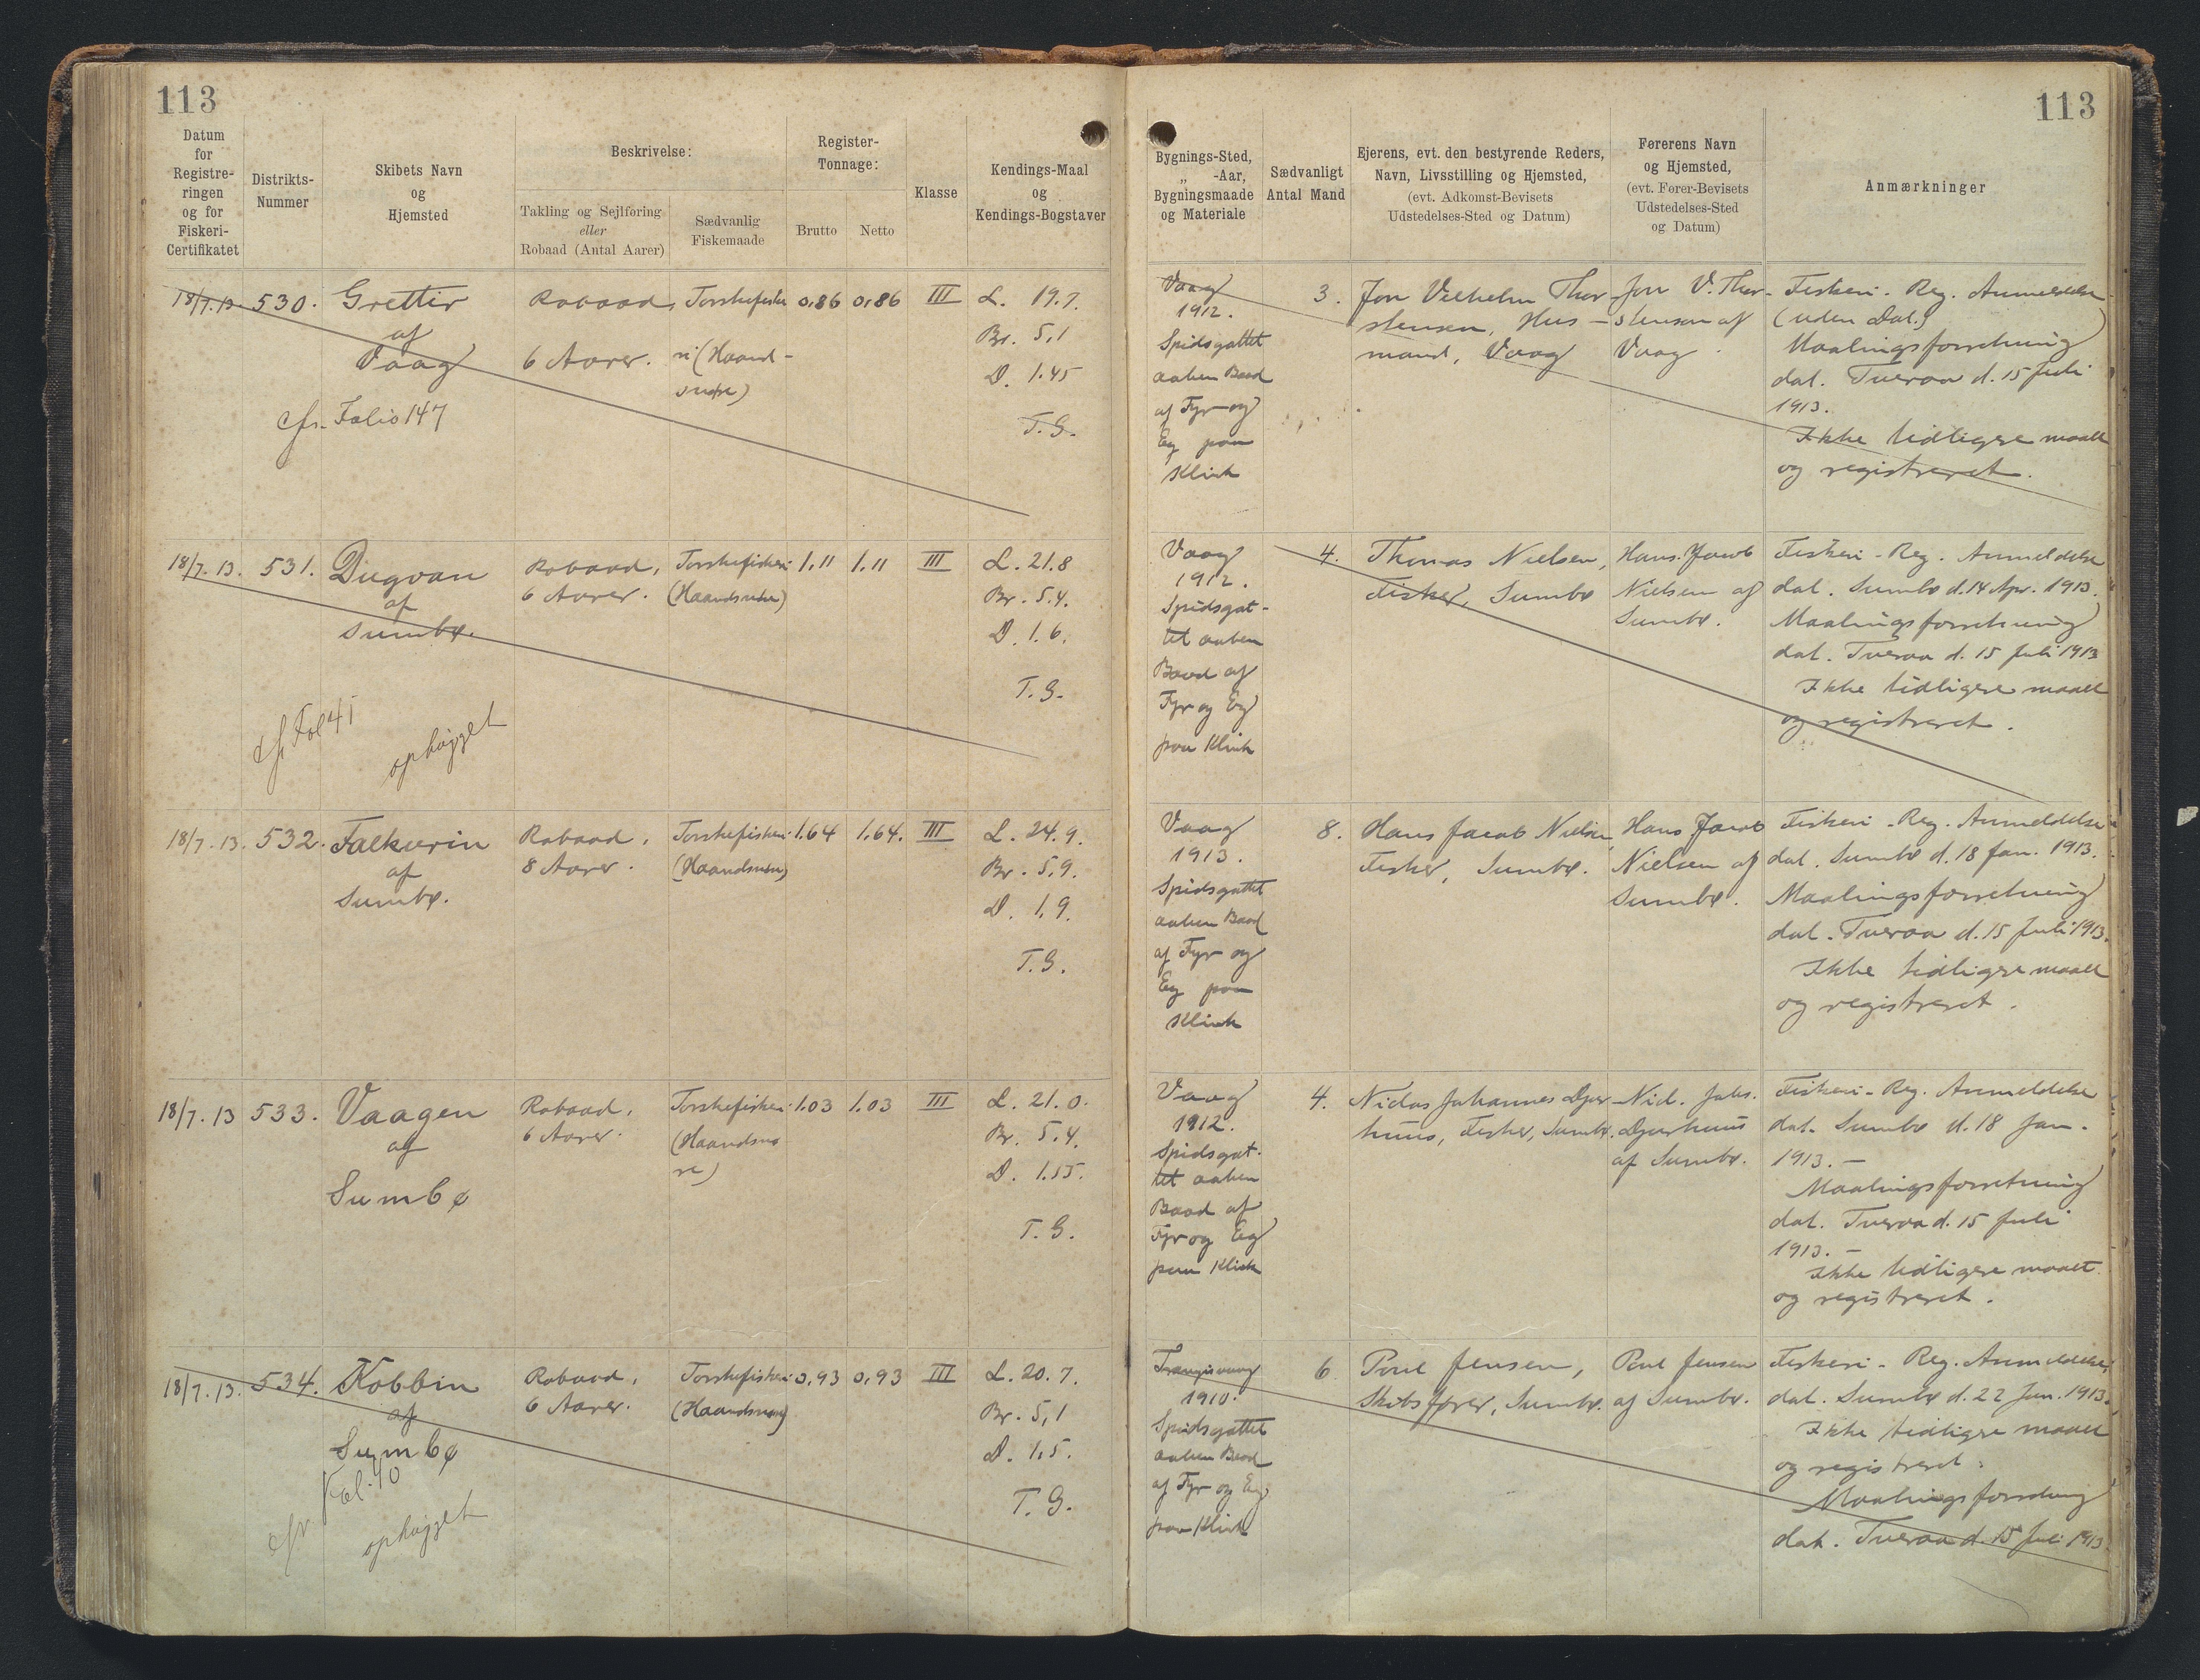 113
113
Datum
for
Registre-
ringen
og for
Fiskeri-
Certifikatet
Distrikts-
Nummer
Skibets Navn
og
Hjemsted
Beskrivelse:
Takling og Sejlføring
eller
Robaad (Antal Aarer)
Sædvanlig
Fiskemaade
Register-
Tonnage:
Brutto
Netto
Klasse
Kendings-Maal
og
Kendings-Bogstaver
Bygnings-Sted,
„ -Aar,
Bygningsmaade
og Materiale
Sædvanligt
Antal Mand
Ejerens, evt. den bestyrende Reders,
Navn, Livsstilling og Hjemsted,
(evt. Adkomst-Bevisets
Udstedelses-Sted og Datum)
Førerens Navn
og Hjemsted,
(evt. Fører-Bevisets
Udstedelses-Sted
og Datum)
Anmærkninger
18/7.13.
530.
Grettir
af
Vaag
cfr. Folio 147
Robaad,
6 Aarer.
Torskefiske
ri (Haand-
snøre)
0,86
0,86
III
L. 19.7.
Br. 5,1
D. 1.45
T.G.
Vaag
1912.
Spidsgattet
aaben Baad
af Fyr og
Eg paa
Klink
3.
Jon Vilhelm Thor-
stensen, Hus-
mand, Vaag
Jon V. Thor-
stensen af
Vaag.
Fiskeri-Reg. Anmeldelse
(uden Dat.)
Maalingsforretning
dat. Tveraa d. 15 Juli
1913.
Ikke tidligere maalt
og registreret.
18/7.13.
531.
Dugvan
af
Sumbø.
cfr Fol 41
ophugget
Robaad,
6 Aarer.
Torskefiskeri
(Haandsnøre)
1.11
1.11
III
L. 21.8
Br. 5.4.
D. 1.6.
T.G.
Vaag
1912.
Spidsgat-
tet aaben
Baad af
Fyr og Eg
paa Klink
4.
Thomas Nielsen,
Fisker, Sumbø
Hans Jacob
Nielsen af
Sumbø.
Fiskeri-Reg. Anmeldelse
dat. Sumbø d. 14 Apr. 1913.
Maalingsforretning
dat. Tveraa d. 15 Juli 1913
Ikke tidligere maalt
og registreret.
18/7.13.
532.
Falkurin
af
Sumbø.
Robaad,
8 Aarer.
Torskefiskeri
(Haandsnøre)
1.64
1.64.
III
L. 24.9.
Br. 5,9.
D. 1,9.
T.G.
Vaag
1913.
Spidsgattet
aaben Baad
af Fyr og
Eg paa
Klink
8.
Hans Jacob Nielsen,
Fisker, Sumbø.
Hans Jacob
Nielsen af
Sumbø.
Fiskeri-Reg. Anmeldelse
dat. Sumbø d. 18 Jan. 1913.
Maalingsforretning
dat. Tveraa d. 15 Juli 1913.
Ikke tidligere maalt
og registreret.
18/7.13
533.
Vaagen
af
Sumbø
Robaad,
6 Aarer.
Torskefiskeri
(Haandsnø
re)
1.03
1.03
III
L. 21.0.
Br. 5,4.
D. 1.55.
T.G.
Vaag
1912.
Spidsgat-
tet aaben
Baad af
Fyr og Eg
paa Klink
4.
Johannes Djur-
huus, Fisker, Sumbø.
Nid. Johs.
Djurhuus
af Sumbø.
Fiskeri-Reg. Anmeldelse
dat. Sumbø d. 18 Jan.
1913.—
Maalingsforretning
dat. Tveraa d. 15 Juli
1913.—
Ikke tidligere maalt
og registreret.
18/7.13.
534.
Kobbin
af
Sumbø
cfr Fol. 10
ophugget
Robaad,
6 Aarer.
Torskefiskeri
(Haandsnøre)
0,93
0,93
III
L. 20.7.
Br. 5,1
D. 1,5.
T.G.
Trangisvaag
1910.
Spidsgattet
aaben Baad
af Fyr og Eg
paa Klink
6
Poul Jensen,
Skibsfører, Sumbø.
Poul Jensen
af Sumbø.
Fiskeri-Reg. Anmeldelse
dat. Sumbø d. 22 Jan. 1913.
Ikke tidligere maalt
og registreret.
Maalingsforretning
dat. Tveraa d. 15 Juli 1913